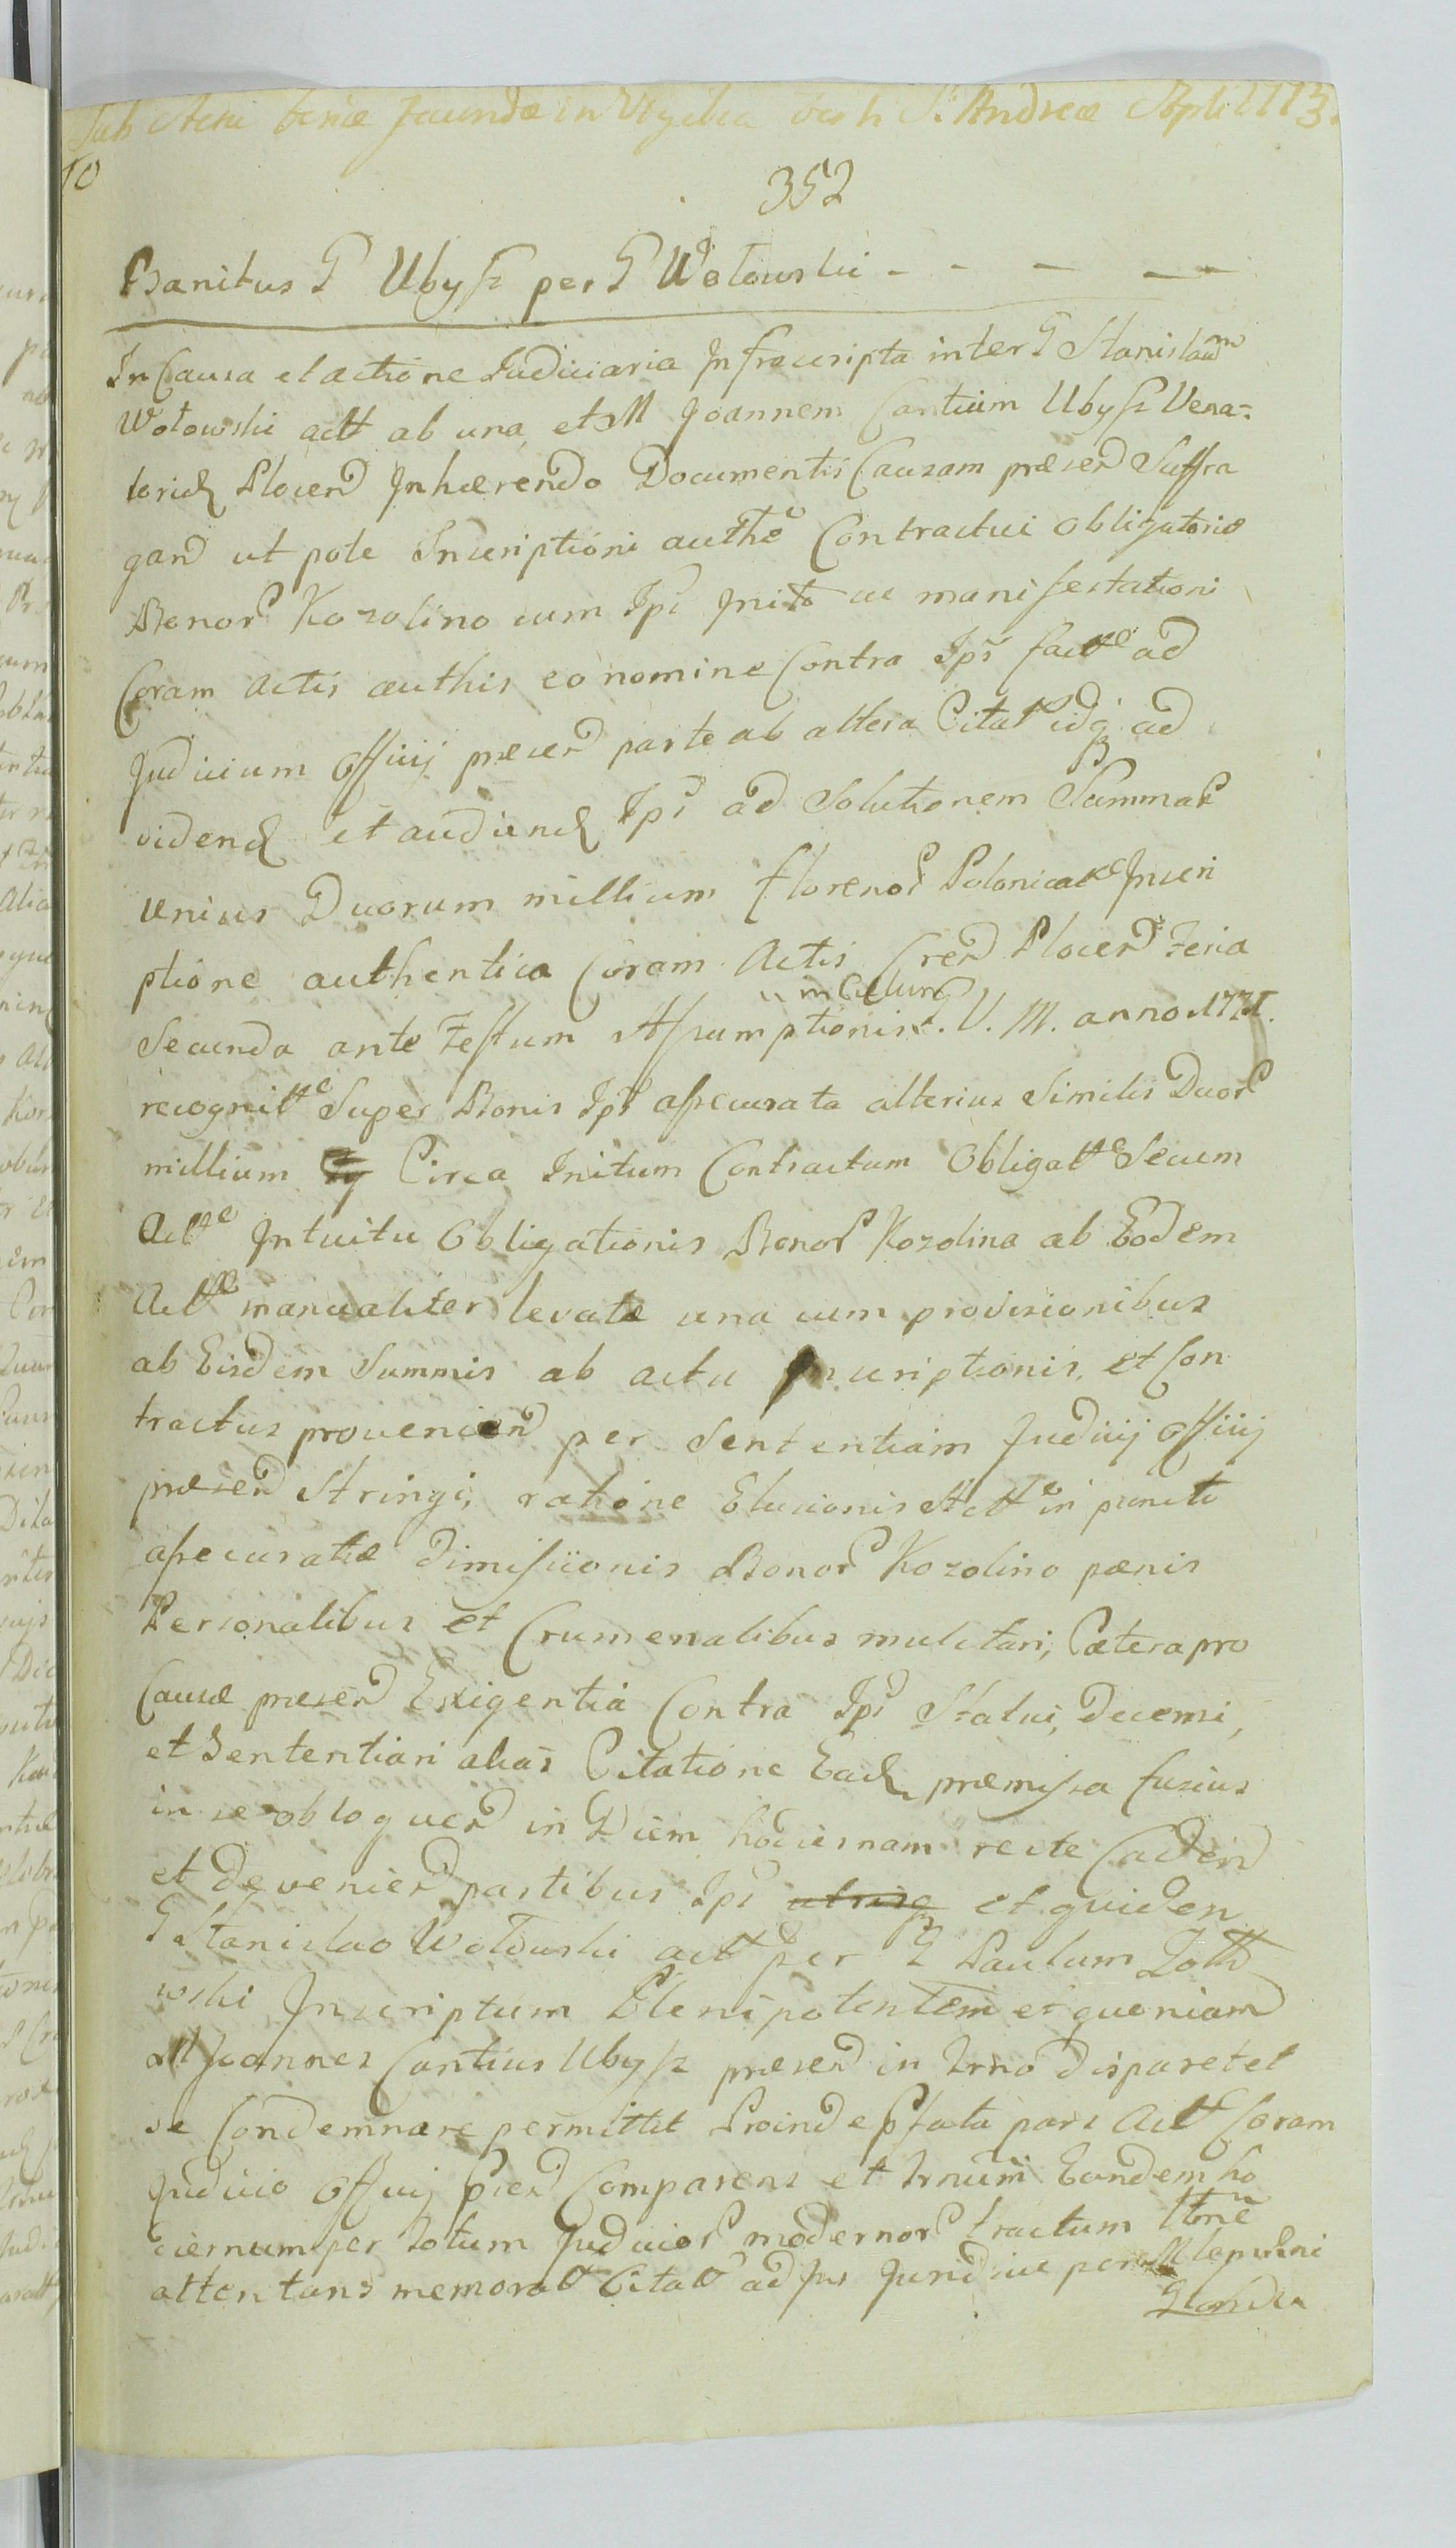 Sub Actu Feriæ Secundæ in Vigilia S. Andreæ Apli 1773.
10
352
Banitus G Ubysz per G Wołowski - - - - -
In Causa et actione Judiciaria Infrascripta inter G Stanislaum
Wołowski actt ab una, et M Joannem Cantium Ubysz Vena-
Plocen Inhærendo Documentis Causam præsen Suffra
gan ut pote Inscriptioni authe Contractui obligatorio
Bonor Kozolino cum Ips Inito ac manifestationi
Coram Actis authis eo nomine Contra Ips factæ ad
Judicium Officij præsen parte ab altera Citat idq ad
videnđ et audienđ Ips ad Solutionem Summar
unius Duorum millium florenor Polonical Inscri
ptione authentica Coram Actis Cren Plocen Feria
in Cælum
Secunda ante Festum Assumptionis B. V. M. anno 1771.
recognitt Super Bonis Ips assecurata alterius Similis Duor
millium Circa Initum Contractum Obligatt Secum
Actt Intuitu Obligationis Bonor Kozolina ab Eodem
Actt manualiter levatæ una cum provisionibus
ab Eisdem Summis ab actu Inscriptionis, et Con
tractus provenien per Sententiam Judicij Officij
præsen Stringi, ratione Elusionis Actt in puncto
assecuratæ dimissionis Bonor Kozolino pænis
Personalibus et Crumenalibus mulctari, Cætera pro
Causæ præsen Exigentia Contra Ips Statui, Decerni,
et Sententiari alias Citatione Eađ præmissa fusius
in se obloquen in Diem hodiernam recte Caden
et devenien partibus Ips et quidem
G Stanislao Wołowski actt per G Paulum
wski Inscriptum Plenipotentem et quoniam
M Joannes Cantius Ubysz præsen in Trno disparet et
se Condemnare permittit Proinde pfata pars Actt Coram
Judicio Officij præn Comparens et Trnum Eundem ho
diernum per Totum Judicior modernor tractum ttne
attentans memorat Citatt ad Jus Juridice per Ministerialem